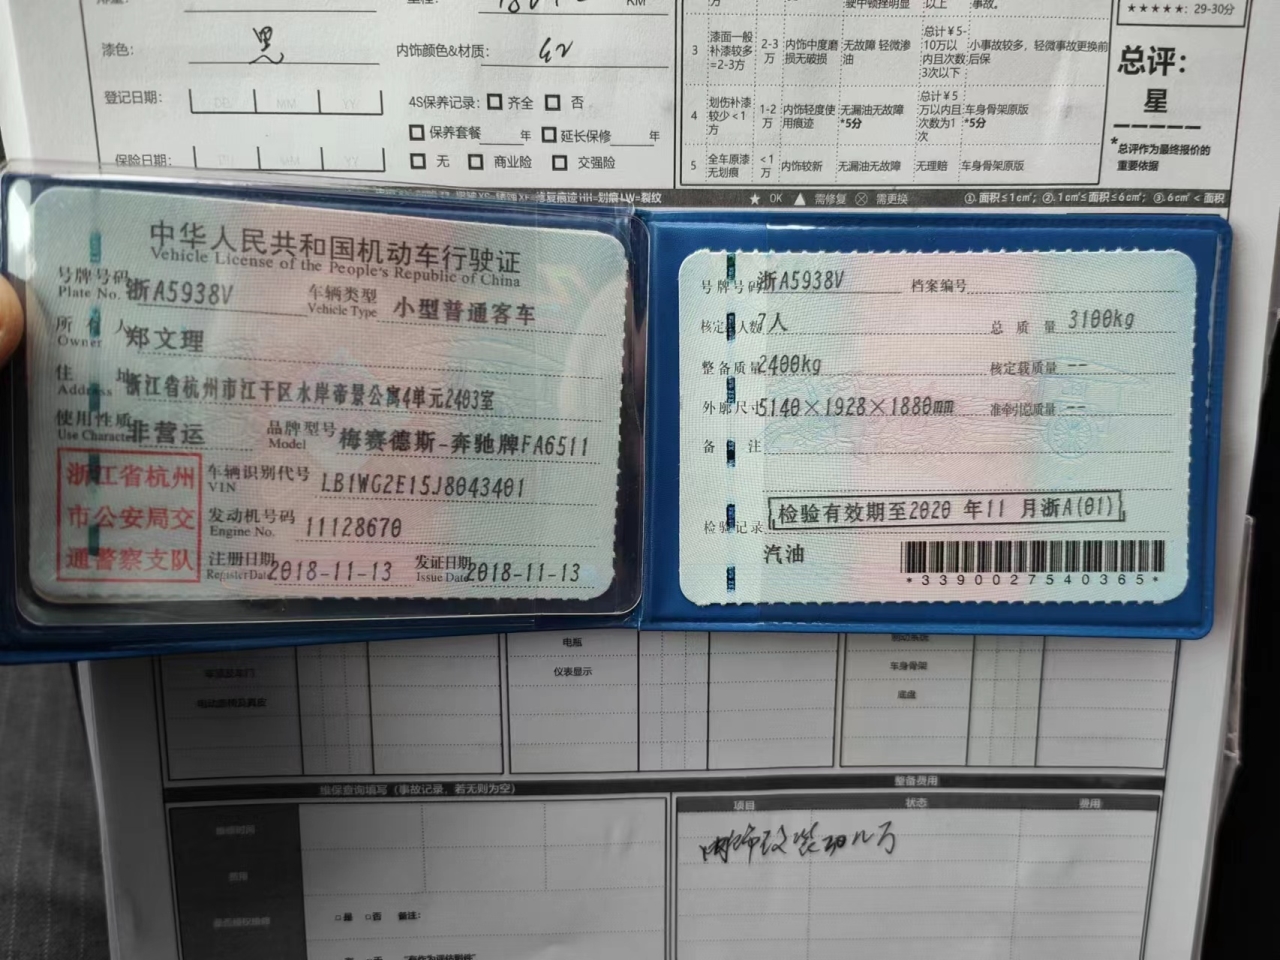 KM
漆色:
黑
内饰颜色&材质:
红
登记日期:
4S保养记录: □ 齐全 □ 否
□ 保养套餐 年 □ 延长保修 年
保险日期:
□ 无 □ 商业险 □ 交强险
万
驶中顿挫明显
以上
事故。
3
漆面一般
补漆较多
=2-3方
2-3
万
内饰中度磨
损无破损
无故障 轻微渗
油
总计¥5-
10万以
内且次数
3次以下
小事故较多，轻微事故更换前
后保
4
划伤补漆
较少<1
方
1-2
万
内饰轻度使
用痕迹
无漏油无故障
*5分
总计¥5
万以内且
次数为1
次
车身骨架原版
*5分
5
全车原漆
无划痕
<1
万
内饰较新
无漏油无故障
无理赔
车身骨架原版
★★★★★: 29-30分
总评:
星
*总评作为最终报价的
重要依据
HH=划痕 LW=裂纹
★ OK ▲ 需修复 ⊗ 需更换
①.面积≤1cm²; ②.1cm²≤面积≤6cm²; ③.6cm²<面积
中华人民共和国机动车行驶证
Vehicle License of the People's Republic of China
号牌号码
Plate No.
浙A5938V
车辆类型
Vehicle Type
小型普通客车
所有人
Owner
郑文理
住址
Address
浙江省杭州市江干区水岸帝景公寓4单元2403室
使用性质
Use Character
非营运
品牌型号
Model
梅赛德斯-奔驰牌FA6511
浙江省杭州
市公安局交
通警察支队
车辆识别代号
VIN
LB1WG2E15J8043401
发动机号码
Engine No.
11128670
注册日期
Register Date
2018-11-13
发证日期
Issue Date
2018-11-13
号牌号码 浙A5938V
档案编号
核定载人数 7人
总质量 3100kg
整备质量 2400kg
核定载质量 --
外廓尺寸 5140×1928×1880mm
准牵引总质量 --
备注
检验记录
检验有效期至2020 年11 月浙A(01)
汽油
*3390027540365*
电瓶
仪表显示
制动系统
车身骨架
底盘
维保查询填写（事故记录，若无则为空）
整备费用
项目
状态
费用
内饰改装动几万
□是 □否 备注: